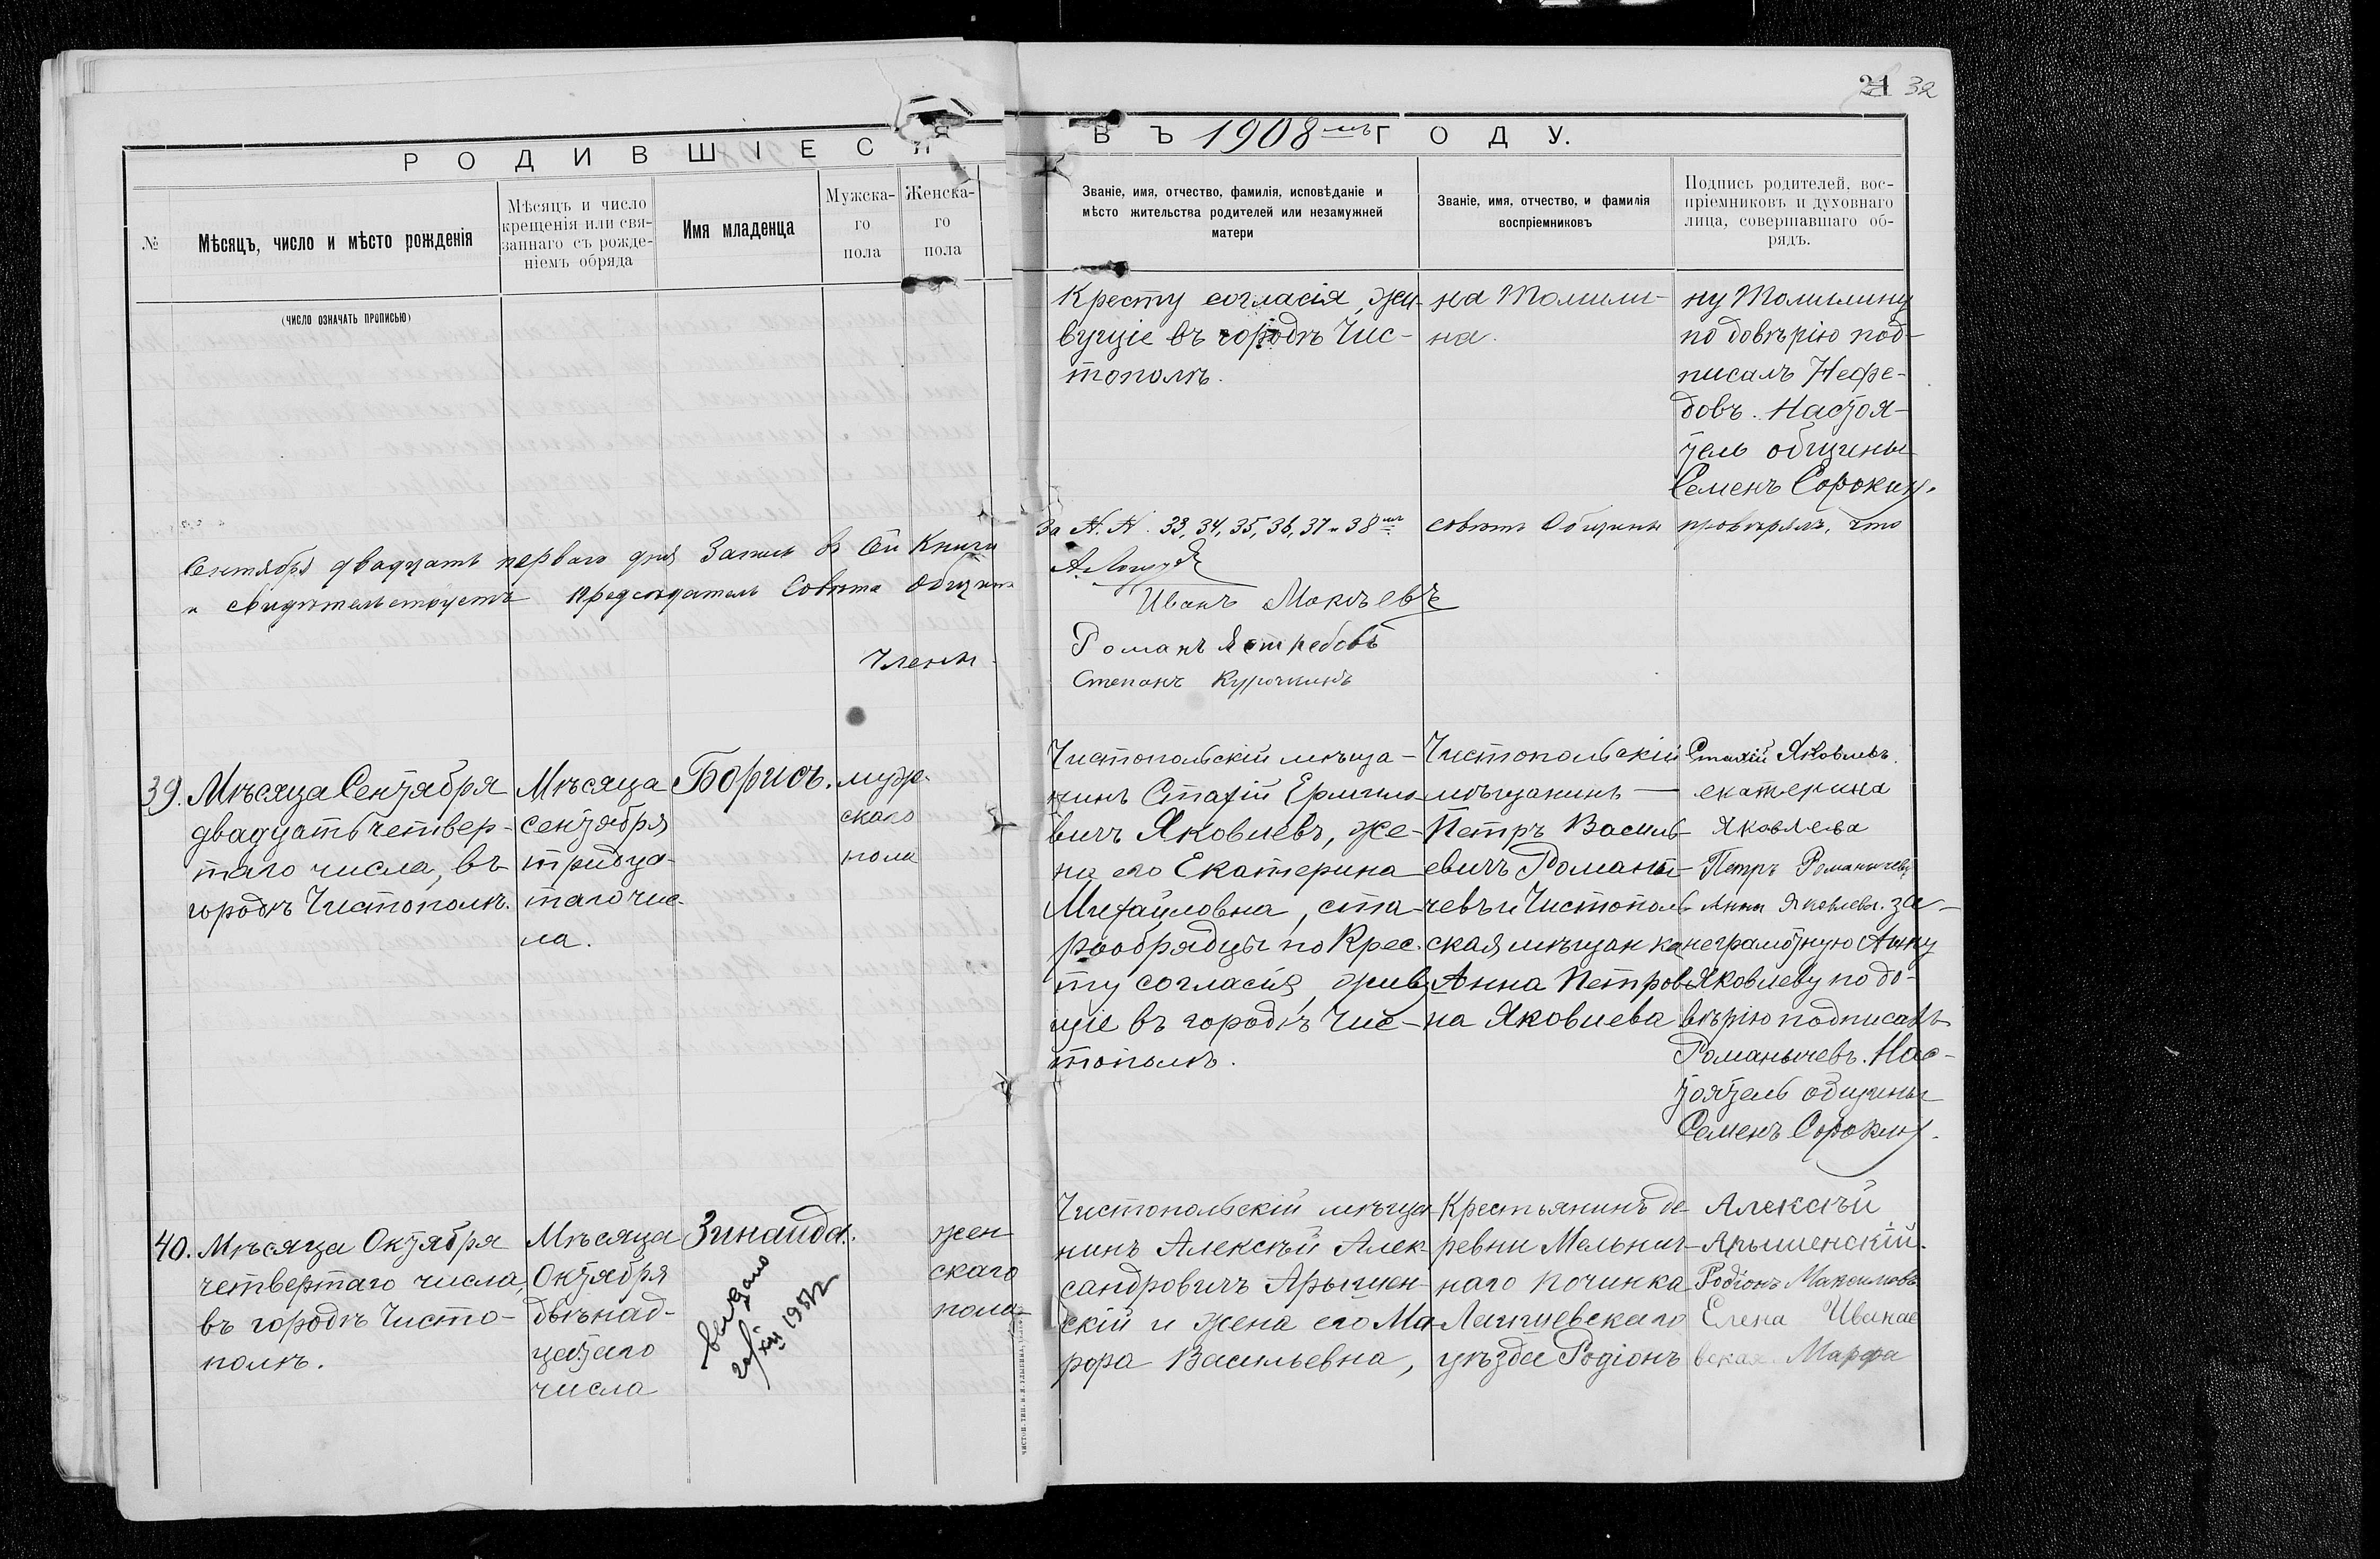 21 32
РОДИВШІЕСЯ
ВЪ 1908мъ ГОДУ.
№
Мѣсяцъ, число и мѣсто рожденія
Мѣсяцъ и число
крещенія или свя-
заннаго съ рожде-
ніемъ обряда
Имя младенца
Мужска-
го
пола
Женска-
го
пола
Званіе, имя, отчество, фамилія, исповѣданіе и
мѣсто жительства родителей или незамужней
матери
Званіе, имя, отчество, и фамилія
воспріемниковъ
Подпись родителей, вос-
пріемниковъ и духовнаго
лица, совершавшаго об-
рядъ.
(ЧИСЛО ОЗНАЧАТЬ ПРОПИСЬЮ)
Кресту согласія, жи-
вущіе въ городѣ Чис-
тополѣ.
на Томили-
на.
ну Томилину
по довѣрію под-
писалъ Нефе-
довъ. Настоя-
тель общины
Семенъ Сорокин.
За N.N. 33, 34, 35, 36, 37 и 38мъ совѣтъ Общины провѣрялъ, что
Сентября двадцать перваго дня Запись въ сей Книги
и свидѣтельствуетъ Предсѣдатель Совѣта Общины
Члены
Иванъ Мокѣевъ
Романъ Ястребовъ
Степанъ Курочкинъ
39.
Мѣсяца Сентября
двадцать четвер-
таго числа, въ
городѣ Чистополѣ.
Мѣсяца
сентября
тридца-
таго чис-
ла.
Борисъ.
муж-
скаго
пола
Чистопольскій мѣща-
нинъ Стахій Ермило-
вичъ Яковлевъ, же-
на его Екатерина
Михайловна, ста-
рообрядцы по Крес-
ту согласія, живу
щіе въ городѣ Чис-
тополѣ.
Чистопольскій
мѣщанинъ —
Петръ Василь-
евичъ Романы-
чевъ и Чистополь-
ская мѣщанка
Анна Петров-
на Яковлева
Стахій Яковлевъ.
екатерина
Яковлева
Петръ Романычевъ
Анна Яковлева. за-
неграмотную Анну
Яковлеву по до-
вѣрію подписалъ
Романычевъ. Нас-
тоятель общины
Семенъ Сорокин.
40.
Мѣсяца Октября
четвертаго числа,
въ городѣ Чисто-
полѣ.
Мѣсяца
Октября
двѣнад-
цатаго
числа
Зинаида.
выдано
жен-
скаго
пола-
Чистопольскій мѣща
нинъ Алексѣй Алек-
сандровичъ Арышен-
скій и жена его Ма-
рфа Васильевна,
Крестьянинъ де-
ревни Мельнич-
наго Починка
Лаишевскаго
уѣзда Родіонъ
Алексѣй
Арышенскій.
Родіонъ Максимовъ
Елена Иванае
вская. Марфа